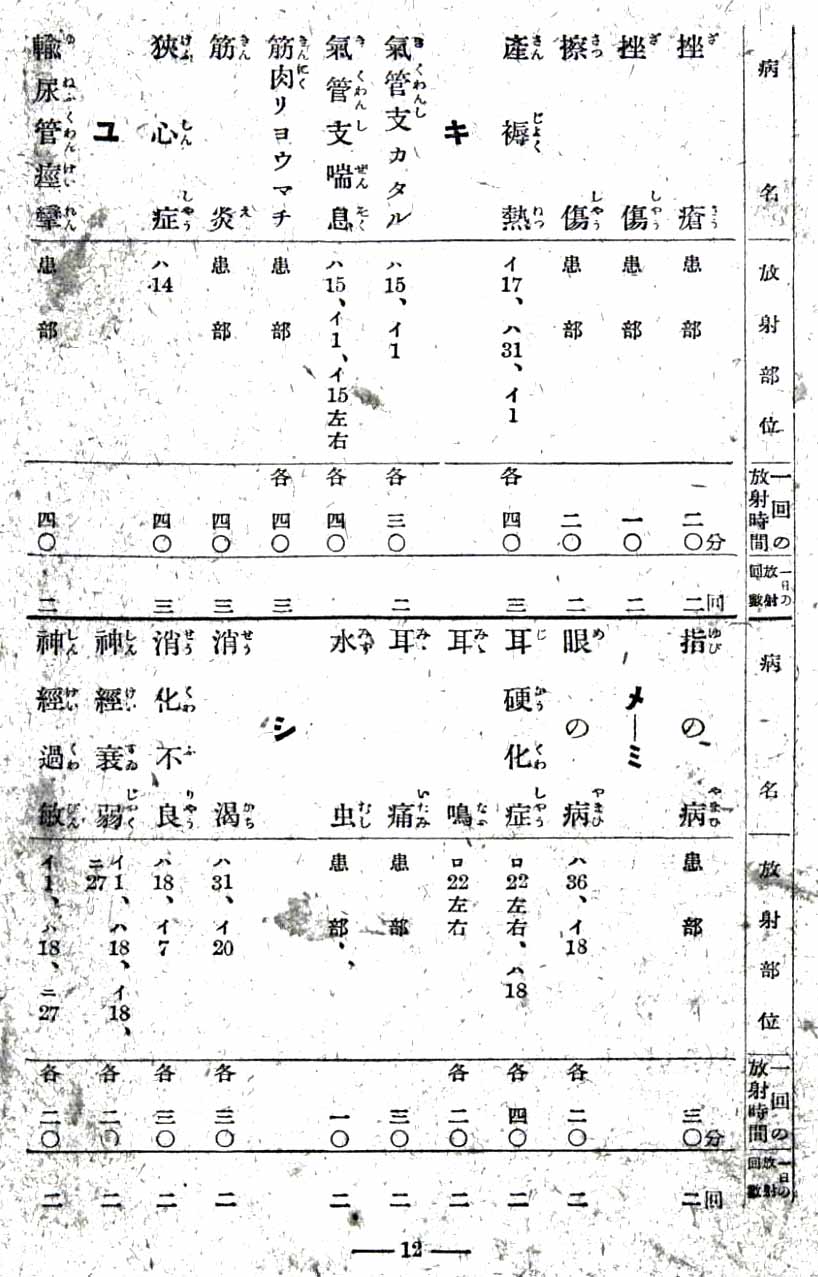 病名
放射部位
一回の放射時間
一日の放射回數
挫瘡 患部 二〇分 二回
挫傷 患部 一〇 二
擦傷 患部 二〇 二
產褥熱 イ17、ハ31、イ1 各四〇 三
キ
氣管支カタル ハ15、イ1 各三〇 二
氣管支喘息 ハ15、イ1、イ15左右 各四〇
筋肉リヨウマチ 患部 各四〇 三
筋炎 患部 四〇 三
狹心症 ハ14 四〇 三
ユ
輸尿管痙攣 患部 四〇 二
病名
放射部位
一回の放射時間
一日の放射回數
指の病 患部 三〇分 二回
メーミ
眼の病 ハ36、イ18 各二〇 二
耳硬化症 ロ22左右、ハ18 各四〇 二
耳鳴 ロ22左右 各二〇 二
耳痛 患部 三〇 二
水虫 患部 一〇 二
シ
消渴 ハ31、イ20 各三〇 二
消化不良 ハ18、イ7 各三〇 二
神經衰弱 イ1、ハ18、イ18、ニ27 各二〇 二
神經過敏 イ1、ハ18、ニ27 各二〇 二
12